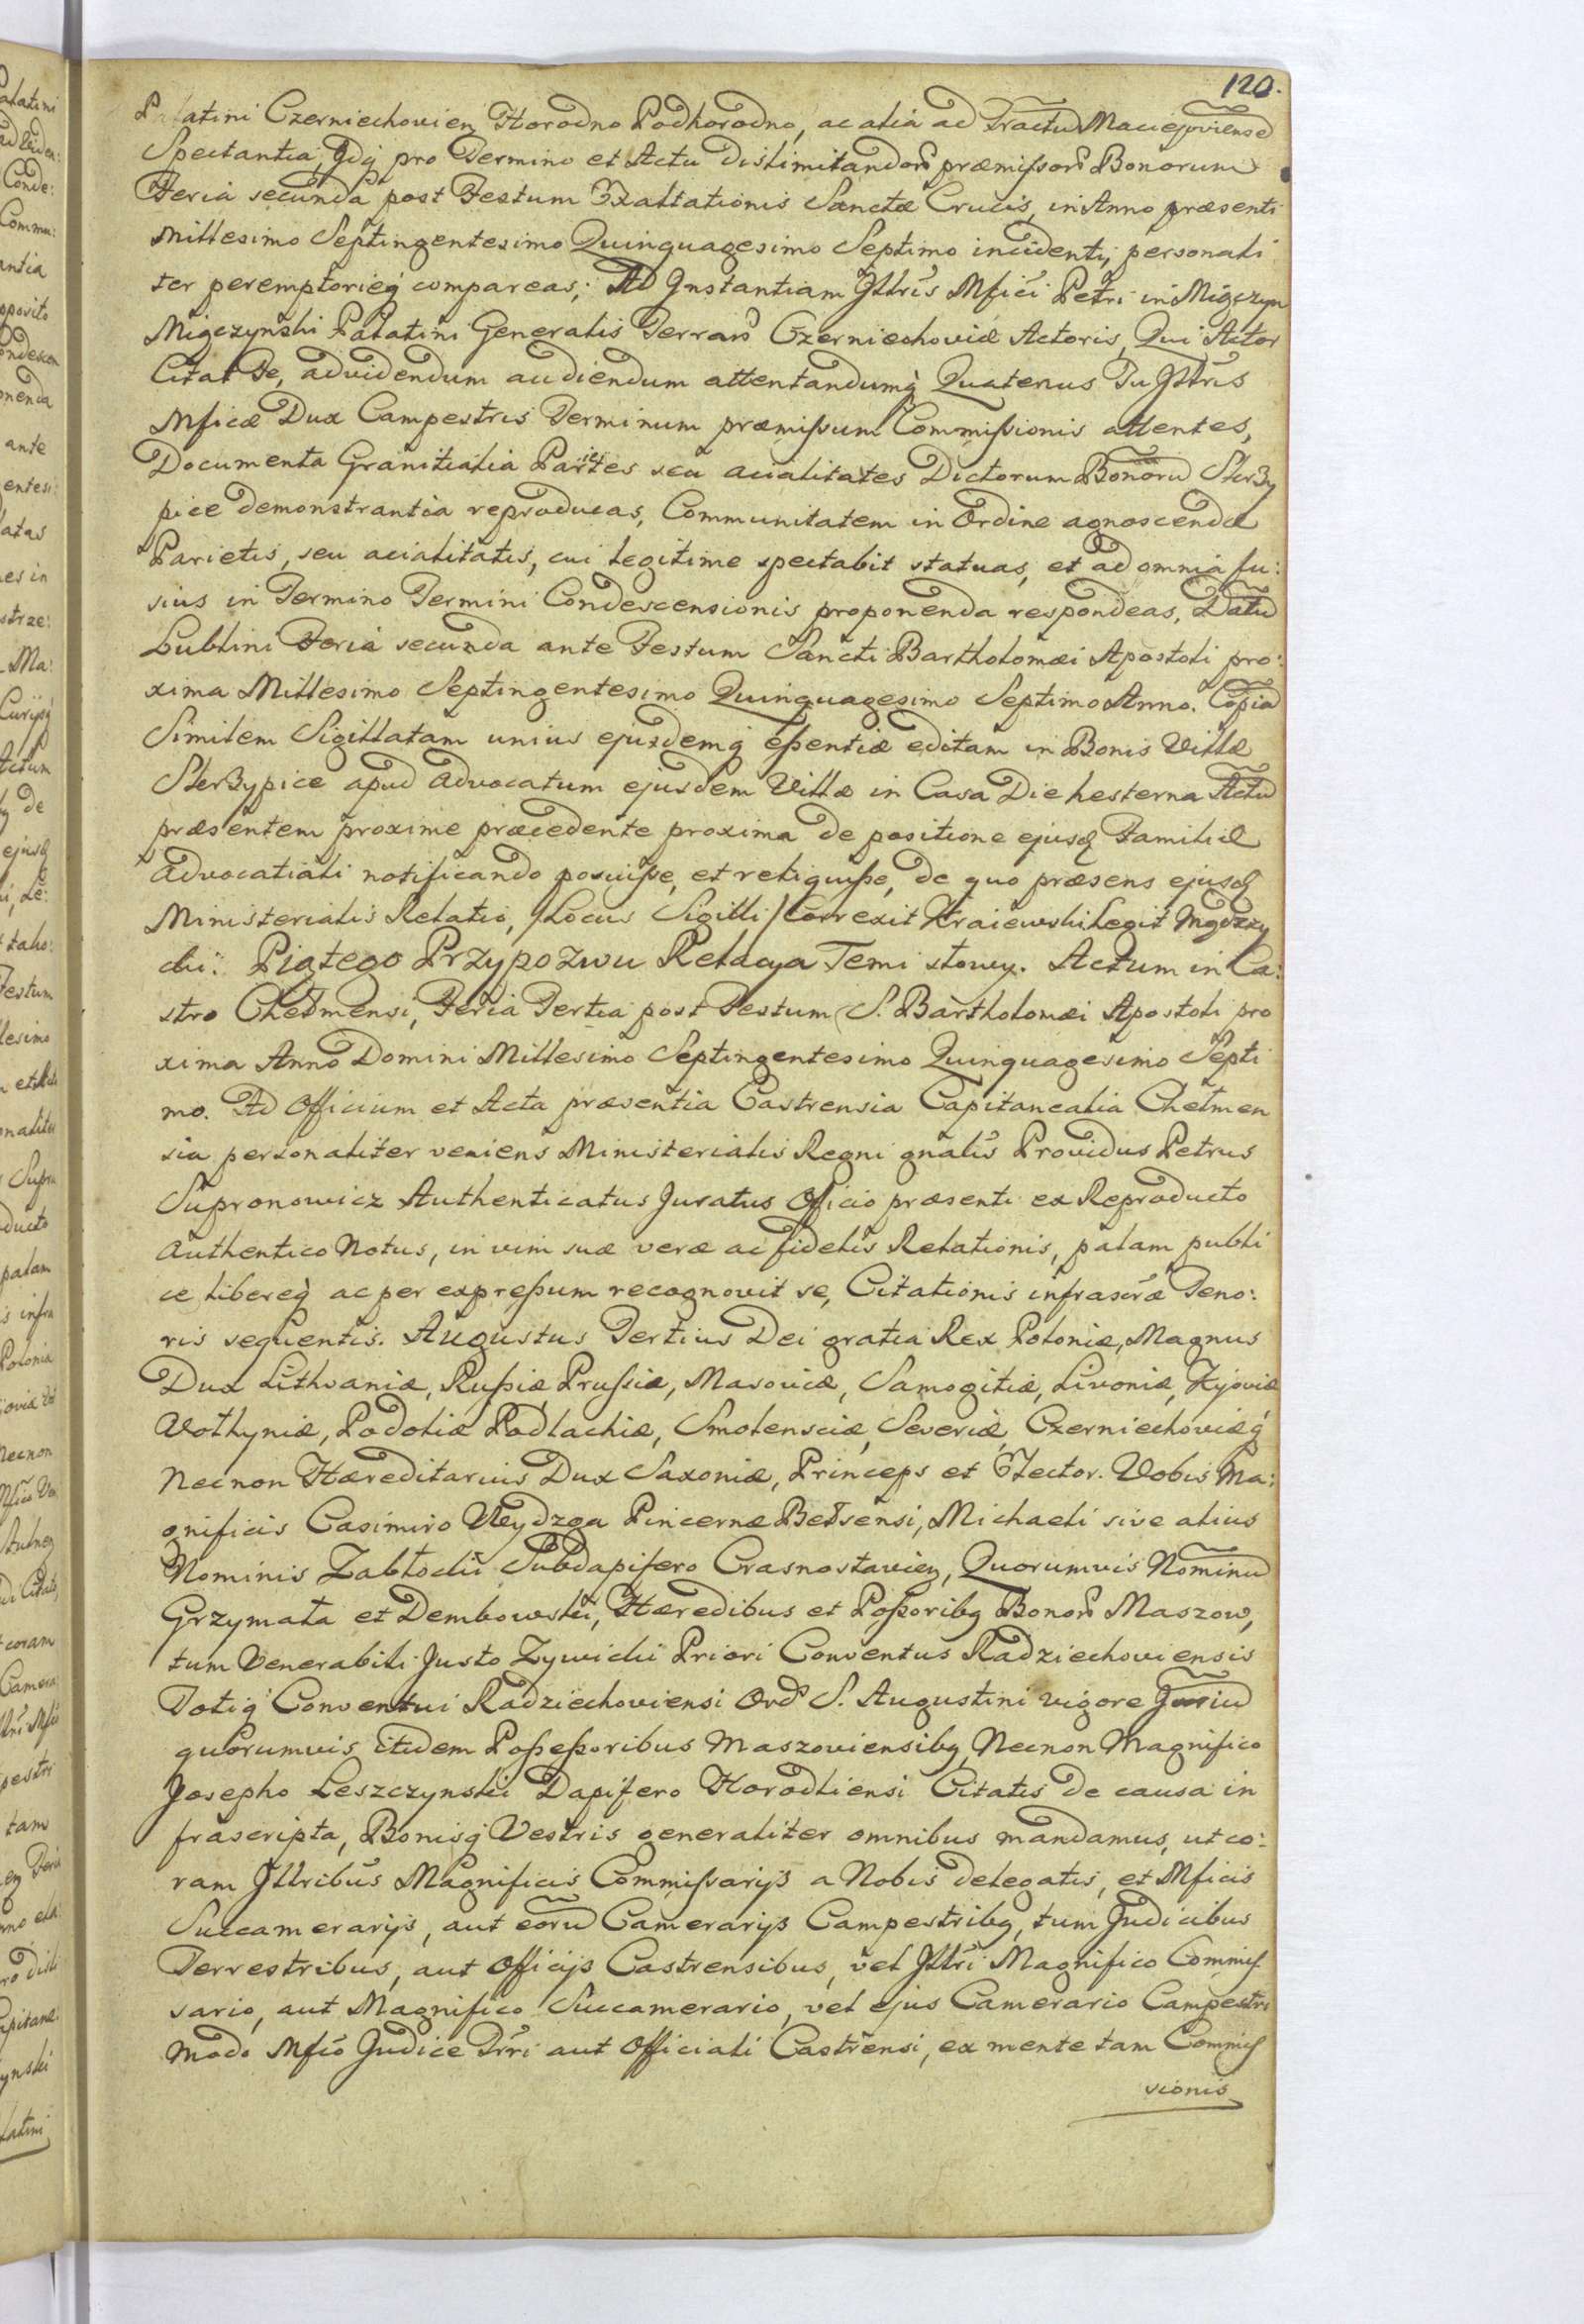 120.
Palatini Czerniechovien Horodno Podhorodno, ac alia ad Tractũ Macieyoviensẽ
Spectantia, Idq̃ pro Termino et Actu dislimitandoꝝ præmissoꝝ Bonorum
Feria secunda post Festum Exaltationis Sanctæ Crucis, in Anno præsenti
Millesimo Septingentesimo Quinquagesimo Septimo incidenti, personali
ter peremptorieq̃ compareas; Ad Instantiam Illtris Mfici Petri in Miączyn
Miączynski Palatini Generalis Terraꝝ Czerniechoviæ Actoris, Qui Actor
Citat Te, ad videndum audiendum attentandumq̃ Quatenus Tu Illtris
Mficæ Dux Campestris Terminum præmissum Commissionis attentes,
Documenta Granitialia Parietes seu acialitates Dictorum Bonorũ Sterzy
pice demonstrantia reproducas, Communitatem in Ordine agnoscendæ
Parietis, seu acialitatis, cui legitime spectabit statuas, et ad omnia fu:
sius in Termino Termini Condescensionis proponenda respondeas, Datũ
Lublini Feria secunda ante Festum Sancti Bartholomæi Apostoli pro:
xima Millesimo Septingentesimo Quinquagesimo Septimo Anno. Copiã
Similem Sigillatam unius ejusdemq̃ essentiæ editam in Bonis Villæ
Sterzypice apud Advocatum ejusdem Villæ in Casa Die hesterna Actũ
præsentem proxime præcedente proxima de positione ejusq̃ Familiæ
Advocatiali notificando posuisse, et reliquisse, de quo præsens ejusq̃
Ministerialis Relatio, /Locus Sigilli/ Correxit Kraiewski Legit Mgdzzy
cki: Piątego Przypozwu Relacya Temi słowy. Actum in Ca:
stro Chełmensi, Feria Tertia post Festum S. Bartholomæi Apostoli pro
xima Anno Domini Millesimo Septingentesimo Quinquagesimo Septi
mo. Ad Officium et Acta præsentia Castrensia Capitanealia Chełmen
sia personaliter veniens Ministerialis Regni gnalis Providus Petrus
Supronowicz Authenticatus Juratus Officio præsenti ex Reproducto
Authentico Notus, in vim suæ veræ ac fidelis Relationis, palam publi
ce libereq̃ ac per expressum recognovit se, Citationis infrascræ Teno:
ris sequentis. Augustus Tertius Dei gratia Rex Poloniæ, Magnus
Dux Lithvaniæ, Russiæ Prussiæ, Masoviæ, Samogitiæ, Livoniæ, Kijoviæ
Vołhyniæ, Podoliæ Podlachiæ, Smolensciæ, Severiæ, Czerniechoviæq̃
Necnon Hæreditarius Dux Saxoniæ, Princeps et Elector. Vobis Ma:
gnificis Casimiro Reydzga Pincernæ Bełsensi, Michaeli sive alius
Nominis Zabłocki Subdapifero Crasnostavien, Quorumvis Nominũ
Grzymała et Dembowski, Hæredibus et Possoribq Bonoꝝ Maszow,
tum Venerabili Justo Zywicki Priori Conventus Radziechoviensis
Totiq̃ Conventui Radziechoviensi Ord S. Augustini vigore Juriũ
quorumvis itidem Possessoribus Maszoviensibq, Necnon Magnifico
Josepho Leszczynski Dapifero Horodliensi Citatis de causa in
frascripta, Bonisq̃ Vestris generaliter omnibus mandamus, ut co:
ram Illtribus Magnificis Commissarijs a Nobis delegatis, et Mficis
Succamerarijs, aut eorũ Camerarijs Campestribq, tum Judicibus
Terrestribus, aut Officijs Castrensibus, vel Illtri Magnifico Commis
sario, aut Magnifico Succamerario, vel ejus Camerario Campestri
modo Mfico Judice Trri aut Officiali Castrensi, ex mente tam Commis
sionis